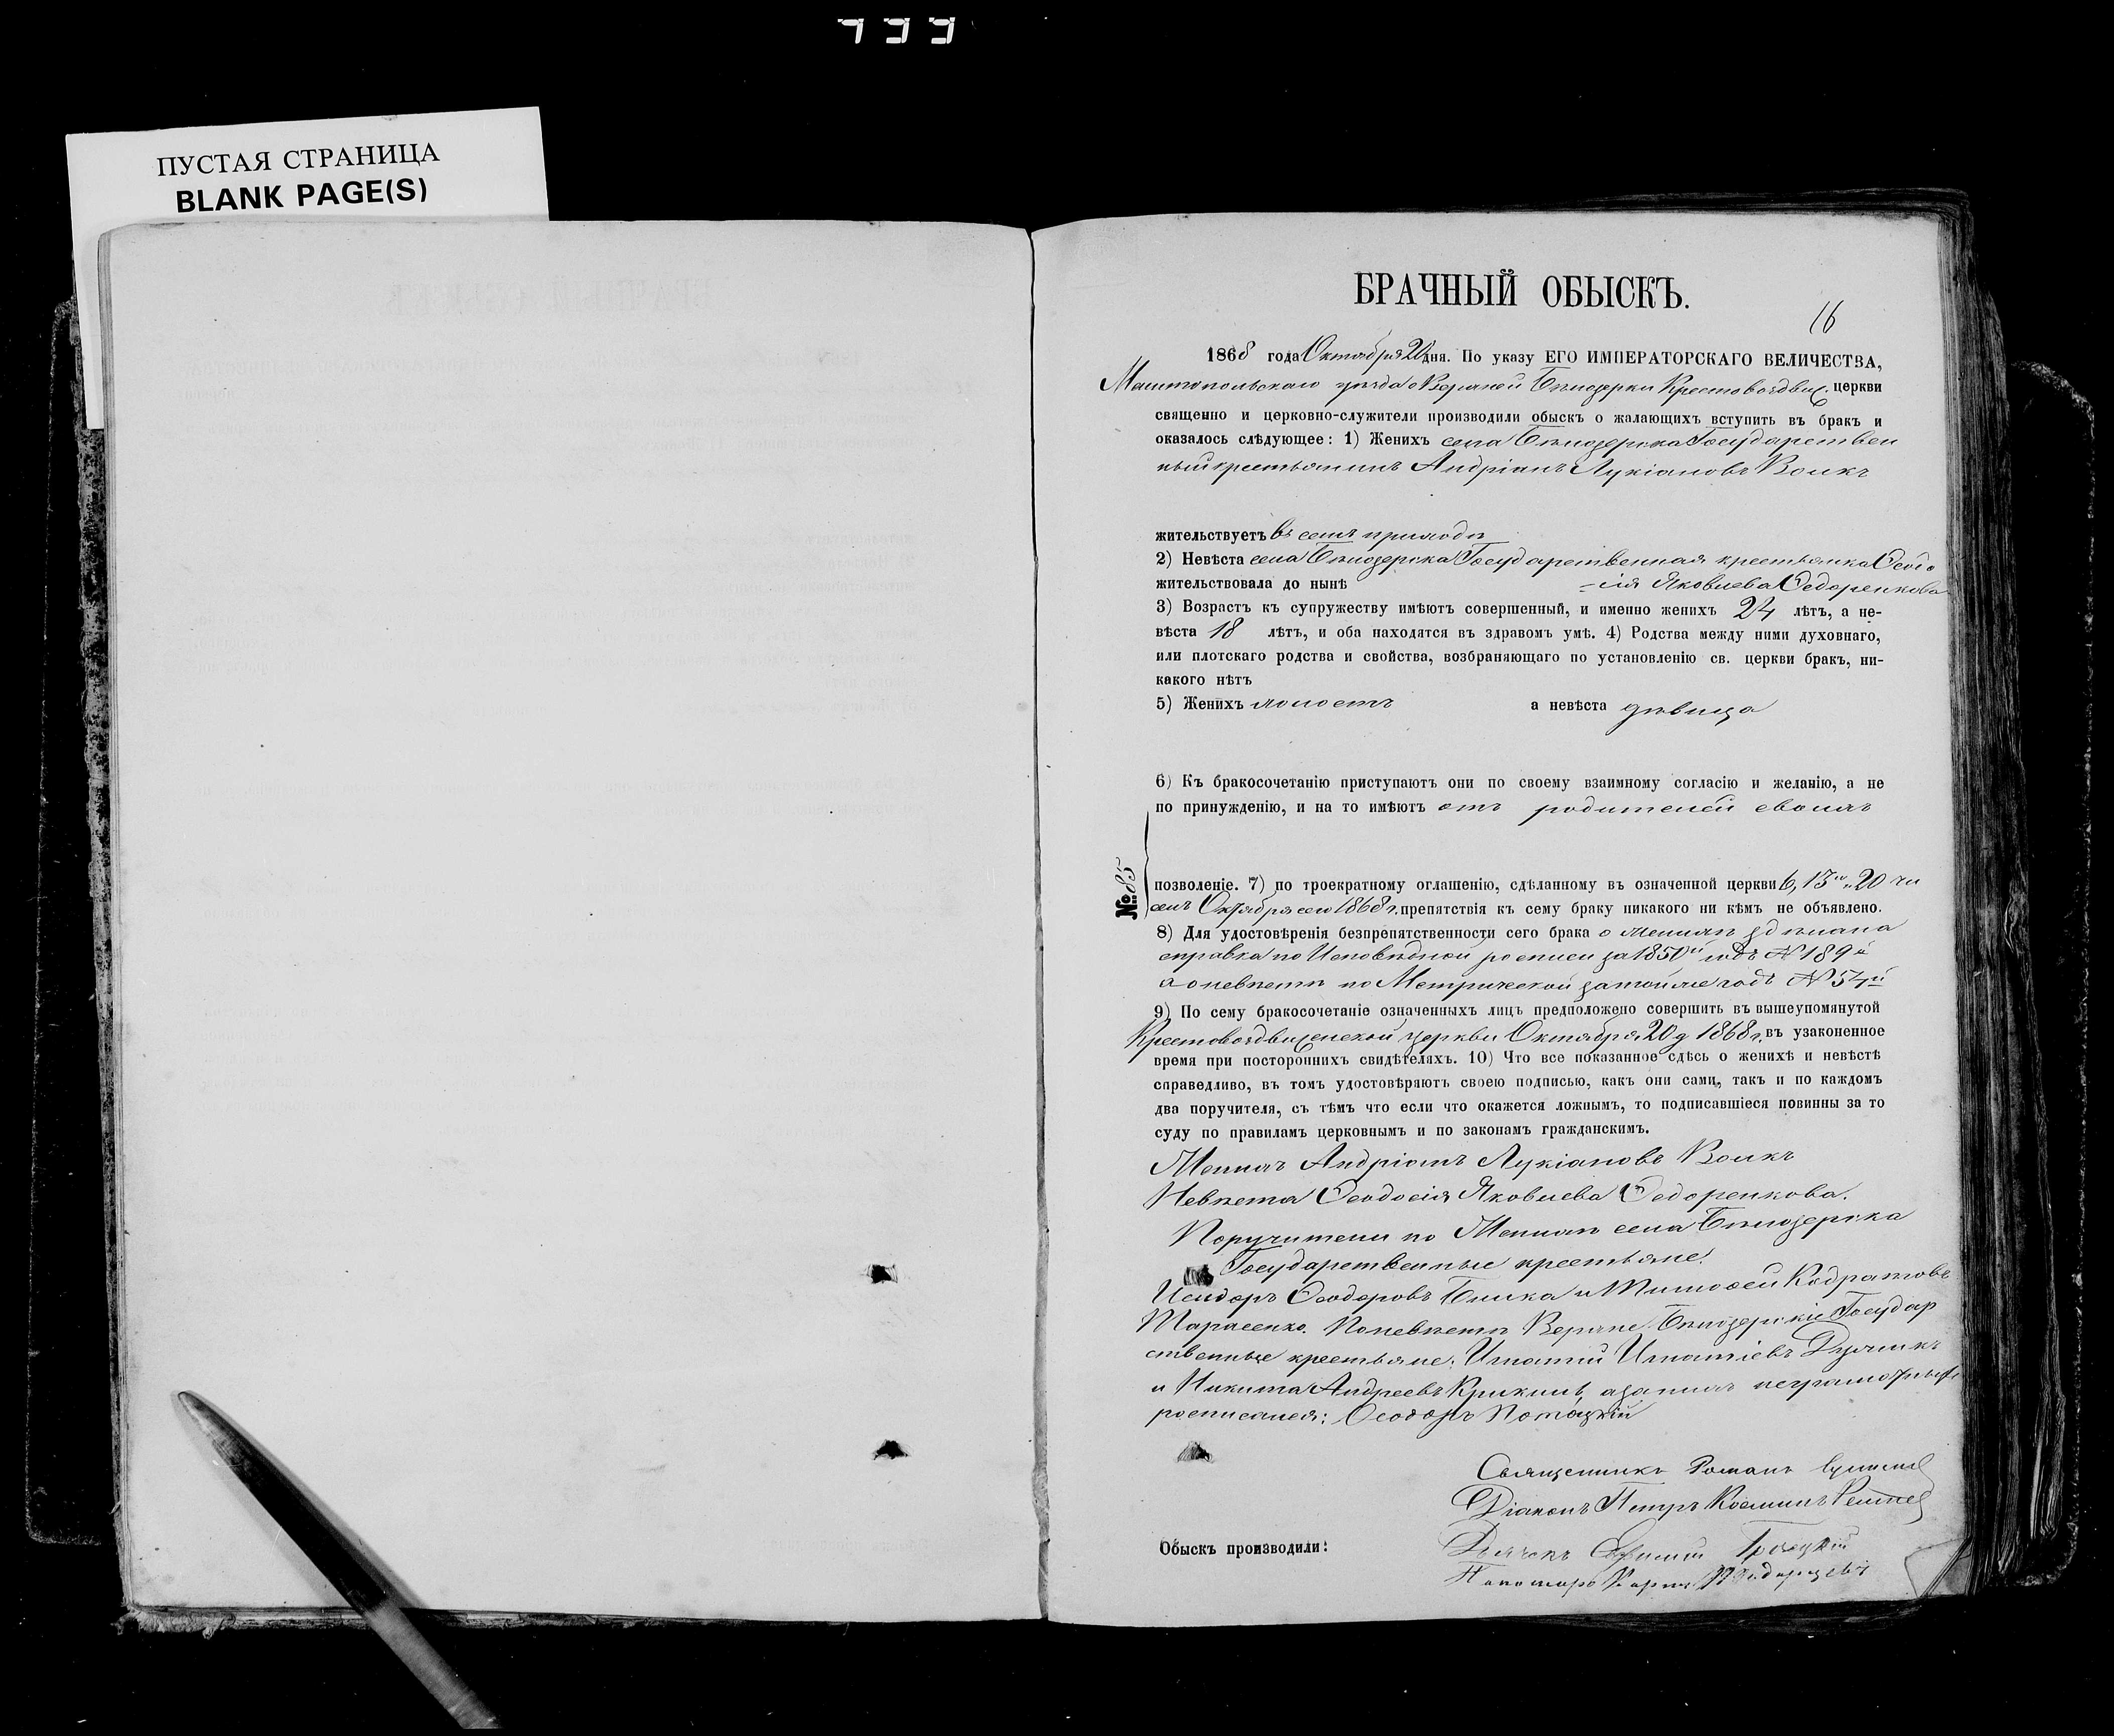 ПУСТАЯ СТРАНИЦА
BLANK PAGE(S)
БРАЧНЫЙ ОБЫСКЪ.
16
1868 года Октября 20 дня. По указу ЕГО ИМПЕРАТОРСКАГО ВЕЛИЧЕСТВА,
Мелитопольскаго уѣзда Верхней Бѣлозерки Крестовоздвиж. церкви
священно и церковно-служители производили обыскъ о жалающихъ вступить въ бракъ и
оказалось слѣдующее: 1) Женихъ села Бѣлозерка Государствен
ный крестьянинъ Андріанъ Лукіановъ Волкъ
жительствуетъ въ семъ приходѣ
2) Невѣста села Бѣлозерка Государственная крестьянка Ѳеодо
жительствовала до нынѣ =сія Яковлева Ѳедоренкова
3) Возрастъ къ супружеству имѣютъ совершенный, и именно женихъ 24 лѣтъ, а не-
вѣста 18 лѣтъ, и оба находятся въ здравомъ умѣ. 4) Родства между ними духовнаго,
или плотскаго родства и свойства, возбраняющаго по установленію св. церкви бракъ, ни-
какого нѣтъ
5) Женихъ холостъ а невѣста дѣвица
6) Къ бракосочетанію приступаютъ они по своему взаимному согласію и желанію, а не
по принужденію, и на то имѣютъ отъ родителей своихъ
№ 85
позволеніе. 7) по троекратному оглашенію, сдѣланному въ означенной церкви 6, 13 и 20 чи
слъ Октября сего 1868 г. препятствія къ сему браку никакого ни кѣмъ не объявлено.
8) Для удостовѣренія безпрепятственности сего брака о женихѣ здѣлана
справка по Исповѣдной росписи за 1850й годъ № 189й
а о невѣстѣ по Метрической за той же годъ № 54й
9) По сему бракосочетаніе означенныхъ лицъ предположено совершить въ вышеупомянутой
Крестовоздвиженской церкви Октября 20 д 1868 г. въ узаконенное
время при постороннихъ свидѣтеляхъ. 10) Что все показанное сдѣсь о женихѣ и невѣстѣ
справедливо, въ томъ удостовѣряютъ своею подписью, какъ они сами, такъ и по каждомъ
два поручителя, съ тѣмъ что если что окажется ложнымъ, то подписавшіеся повинны за то
суду по правиламъ церковнымъ и по законамъ гражданскимъ.
Женихъ Андріанъ Лукіановъ Волкъ
Невѣста Ѳеодосія Яковлева Ѳедоренкова.
Поручители по Женихѣ села Бѣлозерка
Государственные крестьяне.
Исидоръ Ѳеодоровъ Блика и Тимоѳей Кодратовъ
Тарасенко. По невѣстѣ Верхне Бѣлозерскіе Государ
ственные крестьяне: Игнатій Игнатіевъ
и Никита Андреевъ а за нихъ неграмотныхъ
росписался: Ѳеодоръ Потоцкій
Священникъ Романъ
Діаконъ Петръ Косминъ
Обыскъ производили: Дьячекъ Евфимій Троцкій
Пономарь